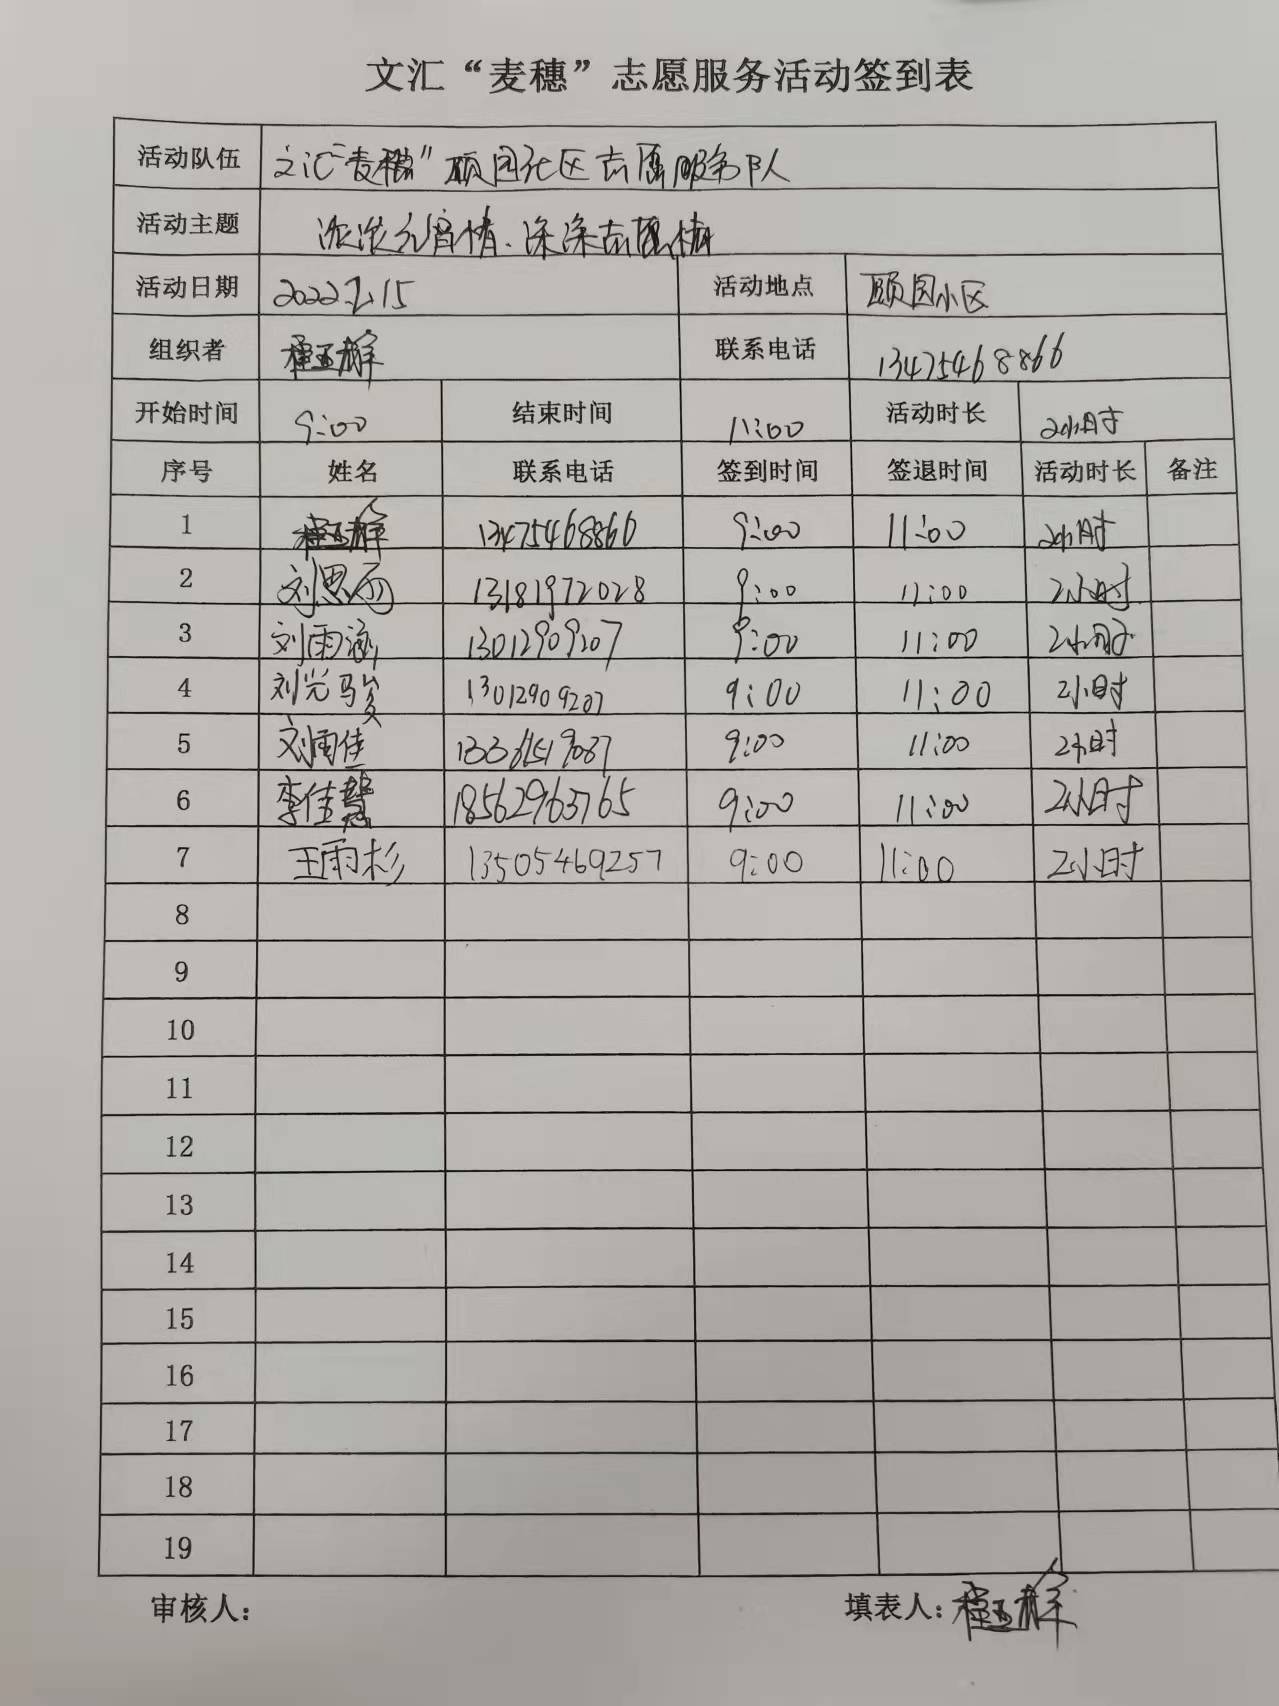 文汇“麦穗”志愿服务活动签到表
活动队伍 文汇“麦穗”颐园社区志愿服务队
活动主题 浓浓元宵情、深深志愿情
活动日期 2022.2.15 活动地点 颐园小区
组织者 联系电话 13475468866
开始时间 9:00 结束时间 11:00 活动时长 2小时
序号 姓名 联系电话 签到时间 签退时间 活动时长 备注
1 13475468866 9:00 11:00 2小时
2 刘思雨 13181972028 9:00 11:00 2小时
3 刘雨涵 13012909207 9:00 11:00 2小时
4 刘光骏 13012909207 9:00 11:00 2小时
5 刘雨佳 9:00 11:00 2小时
6 李佳慧 18562963765 9:00 11:00 2小时
7 王雨杉 13505469257 9:00 11:00 2小时
8
9
10
11
12
13
14
15
16
17
18
19
审核人： 填表人：